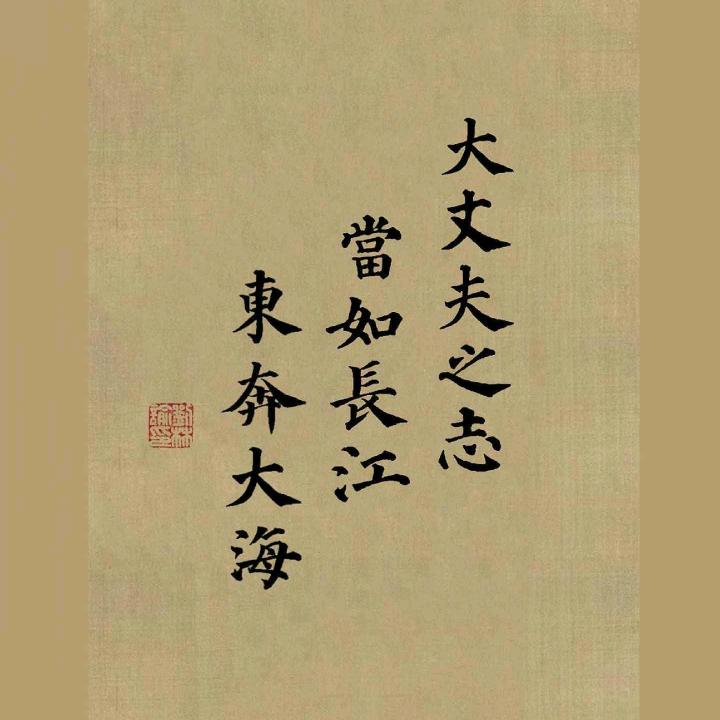 大丈夫之志
當如長江
東奔大海